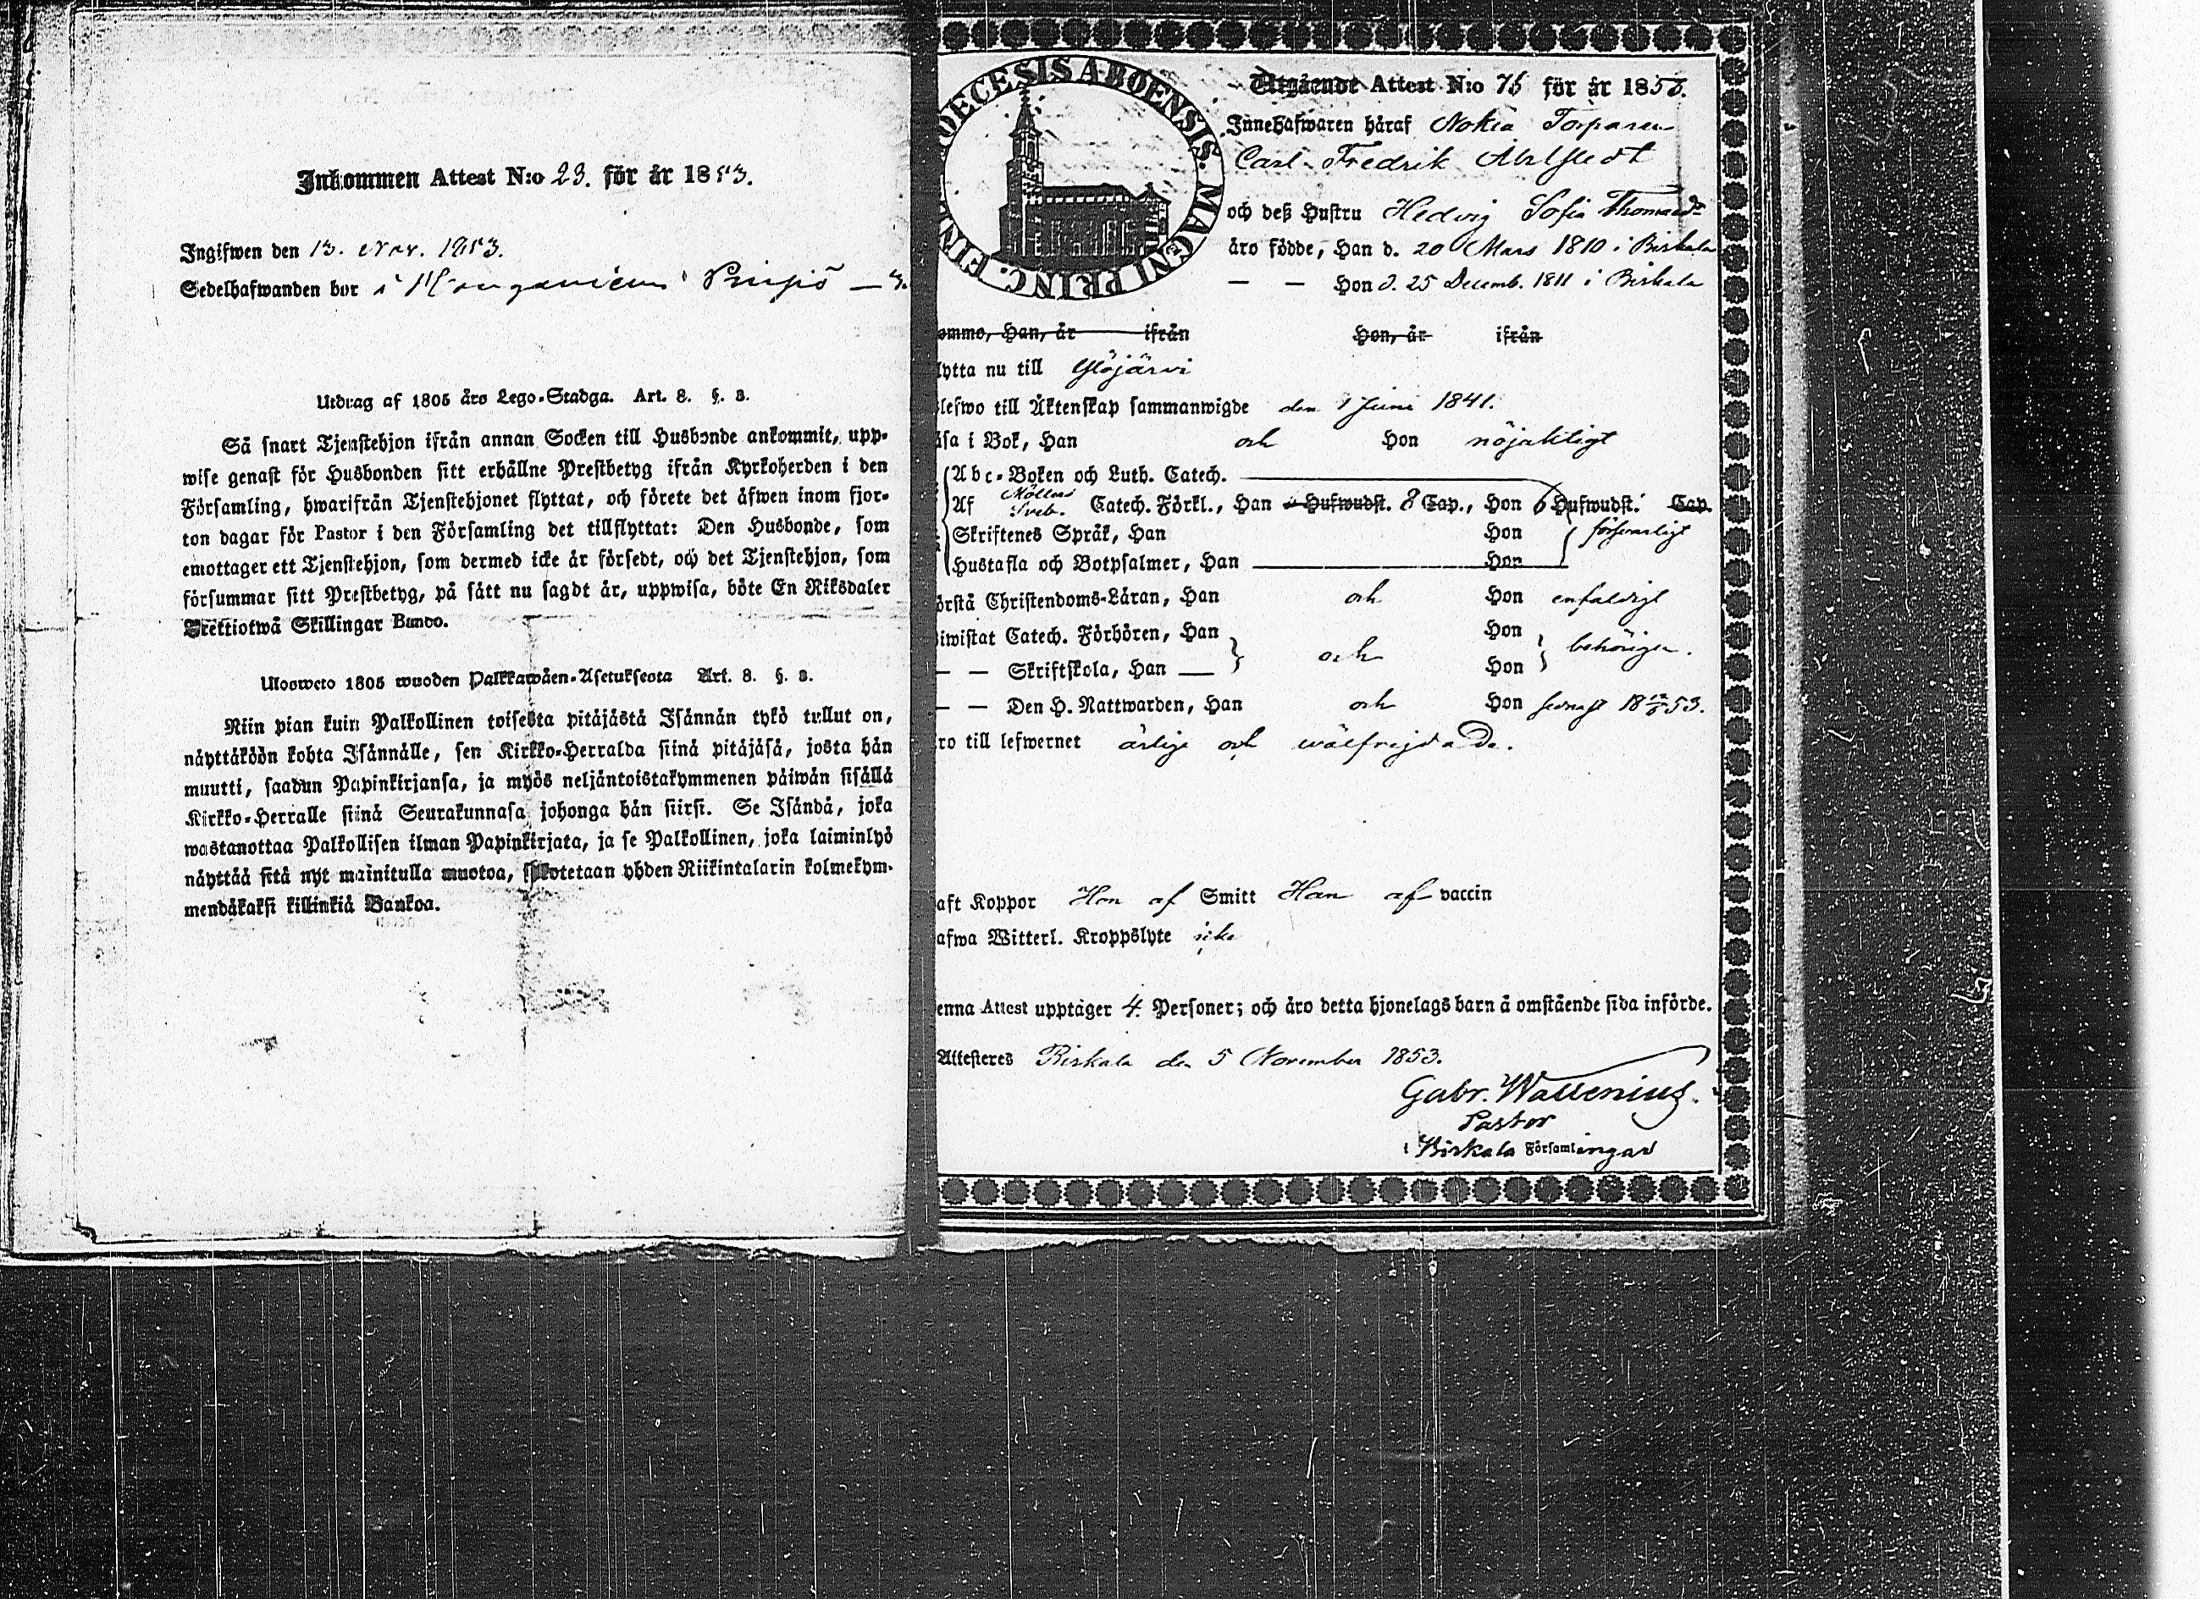 Inkommen Attest N:o 23. för år 1853.
Ingifwen den 13. Nov. 1853.
Sedelhafwanden bor i
Utdrag af 1805 års Lego-Stadga. Art. 8. §. 3.
Så snart Tjenstehjon ifrån annan Socken till Husbonde ankommit, upp-
wise genast för Husbonden sitt erhållne Prestbetyg ifrån Kyrkoherden i den
Församling, hwarifrån Tjenstehjonet flyttat, och förete det äfwen inom fjor-
ton dagar för Pastor i den Församling det tillflyttat: Den Husbonde, som
emottager ett Tjenstehjon, som dermed icke är försedt, och det Tjenstehjon, som
försummar sitt Prestbetyg, på sätt nu sagdt är, uppwisa, böte En Riksdaler
Trettiotwå Skillingar Banco.
Ulosweto 1805 wuoden Palkkawäen-Asetuksesta Art. 8. §. 3.
Niin pian kuin Palkollinen toisesta pitäjästä Isännän tykö tullut on,
näyttäköön kohta Isännälle, sen Kirkko-Herralda siinä pitäjäsä, josta hän
muutti, saadun Papinkirjansa, ja myös neljäntoistakymmenen päiwän sisällä
Kirkko-Herralle siinä Seurakunnasa johonga hän siirsi. Se Isändä, joka
wastanottaa Palkollisen ilman Papinkirjata, ja se Palkollinen, joka laiminlyö
näyttää sitä nyt mainitulla muotoa, sakotetaan yhden Riikintalarin kolmekym-
mendäkaksi killinkiä Bankoa.
DIOECESIS ABOENSIS. MAGNI PRINC. FINL
Utgående Attest N:o 75 för år 1853.
Innehafwaren häraf Nokia Torparen
Carl Fredrik Ahlstedt
och deß Hustru Hedvig Sofia Thomasd:r
äro födde, Han d. 20 Mars 1810 i Birkala
— — Hon d. 25 Decemb. 1811 i Birkala
ommo, Han, år ifrån Hon, år ifrån
lytta nu till Ylöjärvi
blefwo till Äktenskap sammanwigde den 1 Juni 1841.
äsa i Bok, Han och Hon nöjaktigt
Abc-Boken och Luth. Catech.
Af Möllers Sveb. Catech. Förkl., Han Hufwudst. 8 Cap., Hon 6 Hufwudst. Cap.
Skriftenes Språk, Han Hon försvarligt
Hustafla och Botpsalmer, Han Hon
örstå Christendoms-Läran, Han och Hon enfaldigt
iwistat Catech. Förhören, Han och Hon behörigen.
— — Skriftskola, Han — Hon
— — Den H. Nattwarden, Han och Hon sednast 18 53.
ro till lefwernet ärlige och wälfrejdade.
aft Koppor Hon af Smitt Han af vaccin
afwa Witterl. Kroppslyte icke
enna Attest upptager 4. Personer; och äro detta hjonelags barn å omstående sida införde.
Attesteres Birkala den 5 November 1853.
Gabr. Wallenius.
Pastor
i Birkala Församlingar